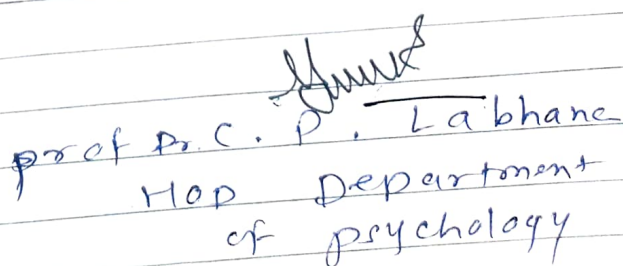 prof Dr. C. P. Labhane
HOD Department
of psychology